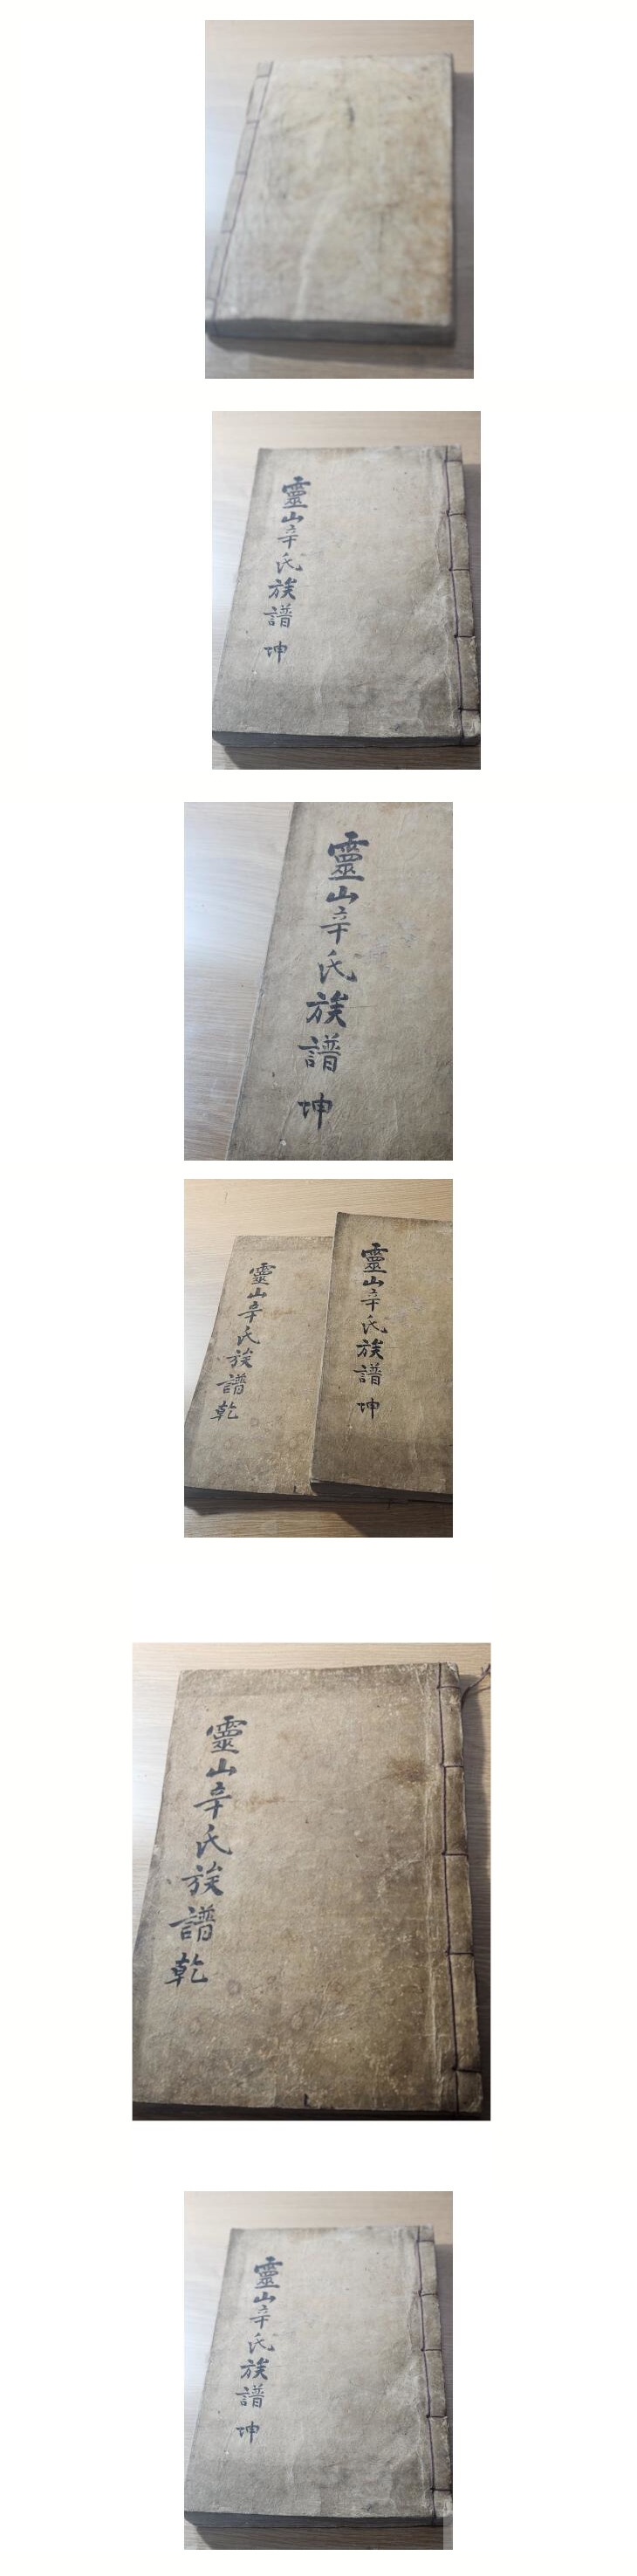 靈山辛氏族譜 坤
靈山辛氏族譜 坤
靈山辛氏族譜 乾
靈山辛氏族譜 坤
靈山辛氏族譜 乾
靈山辛氏族譜 坤